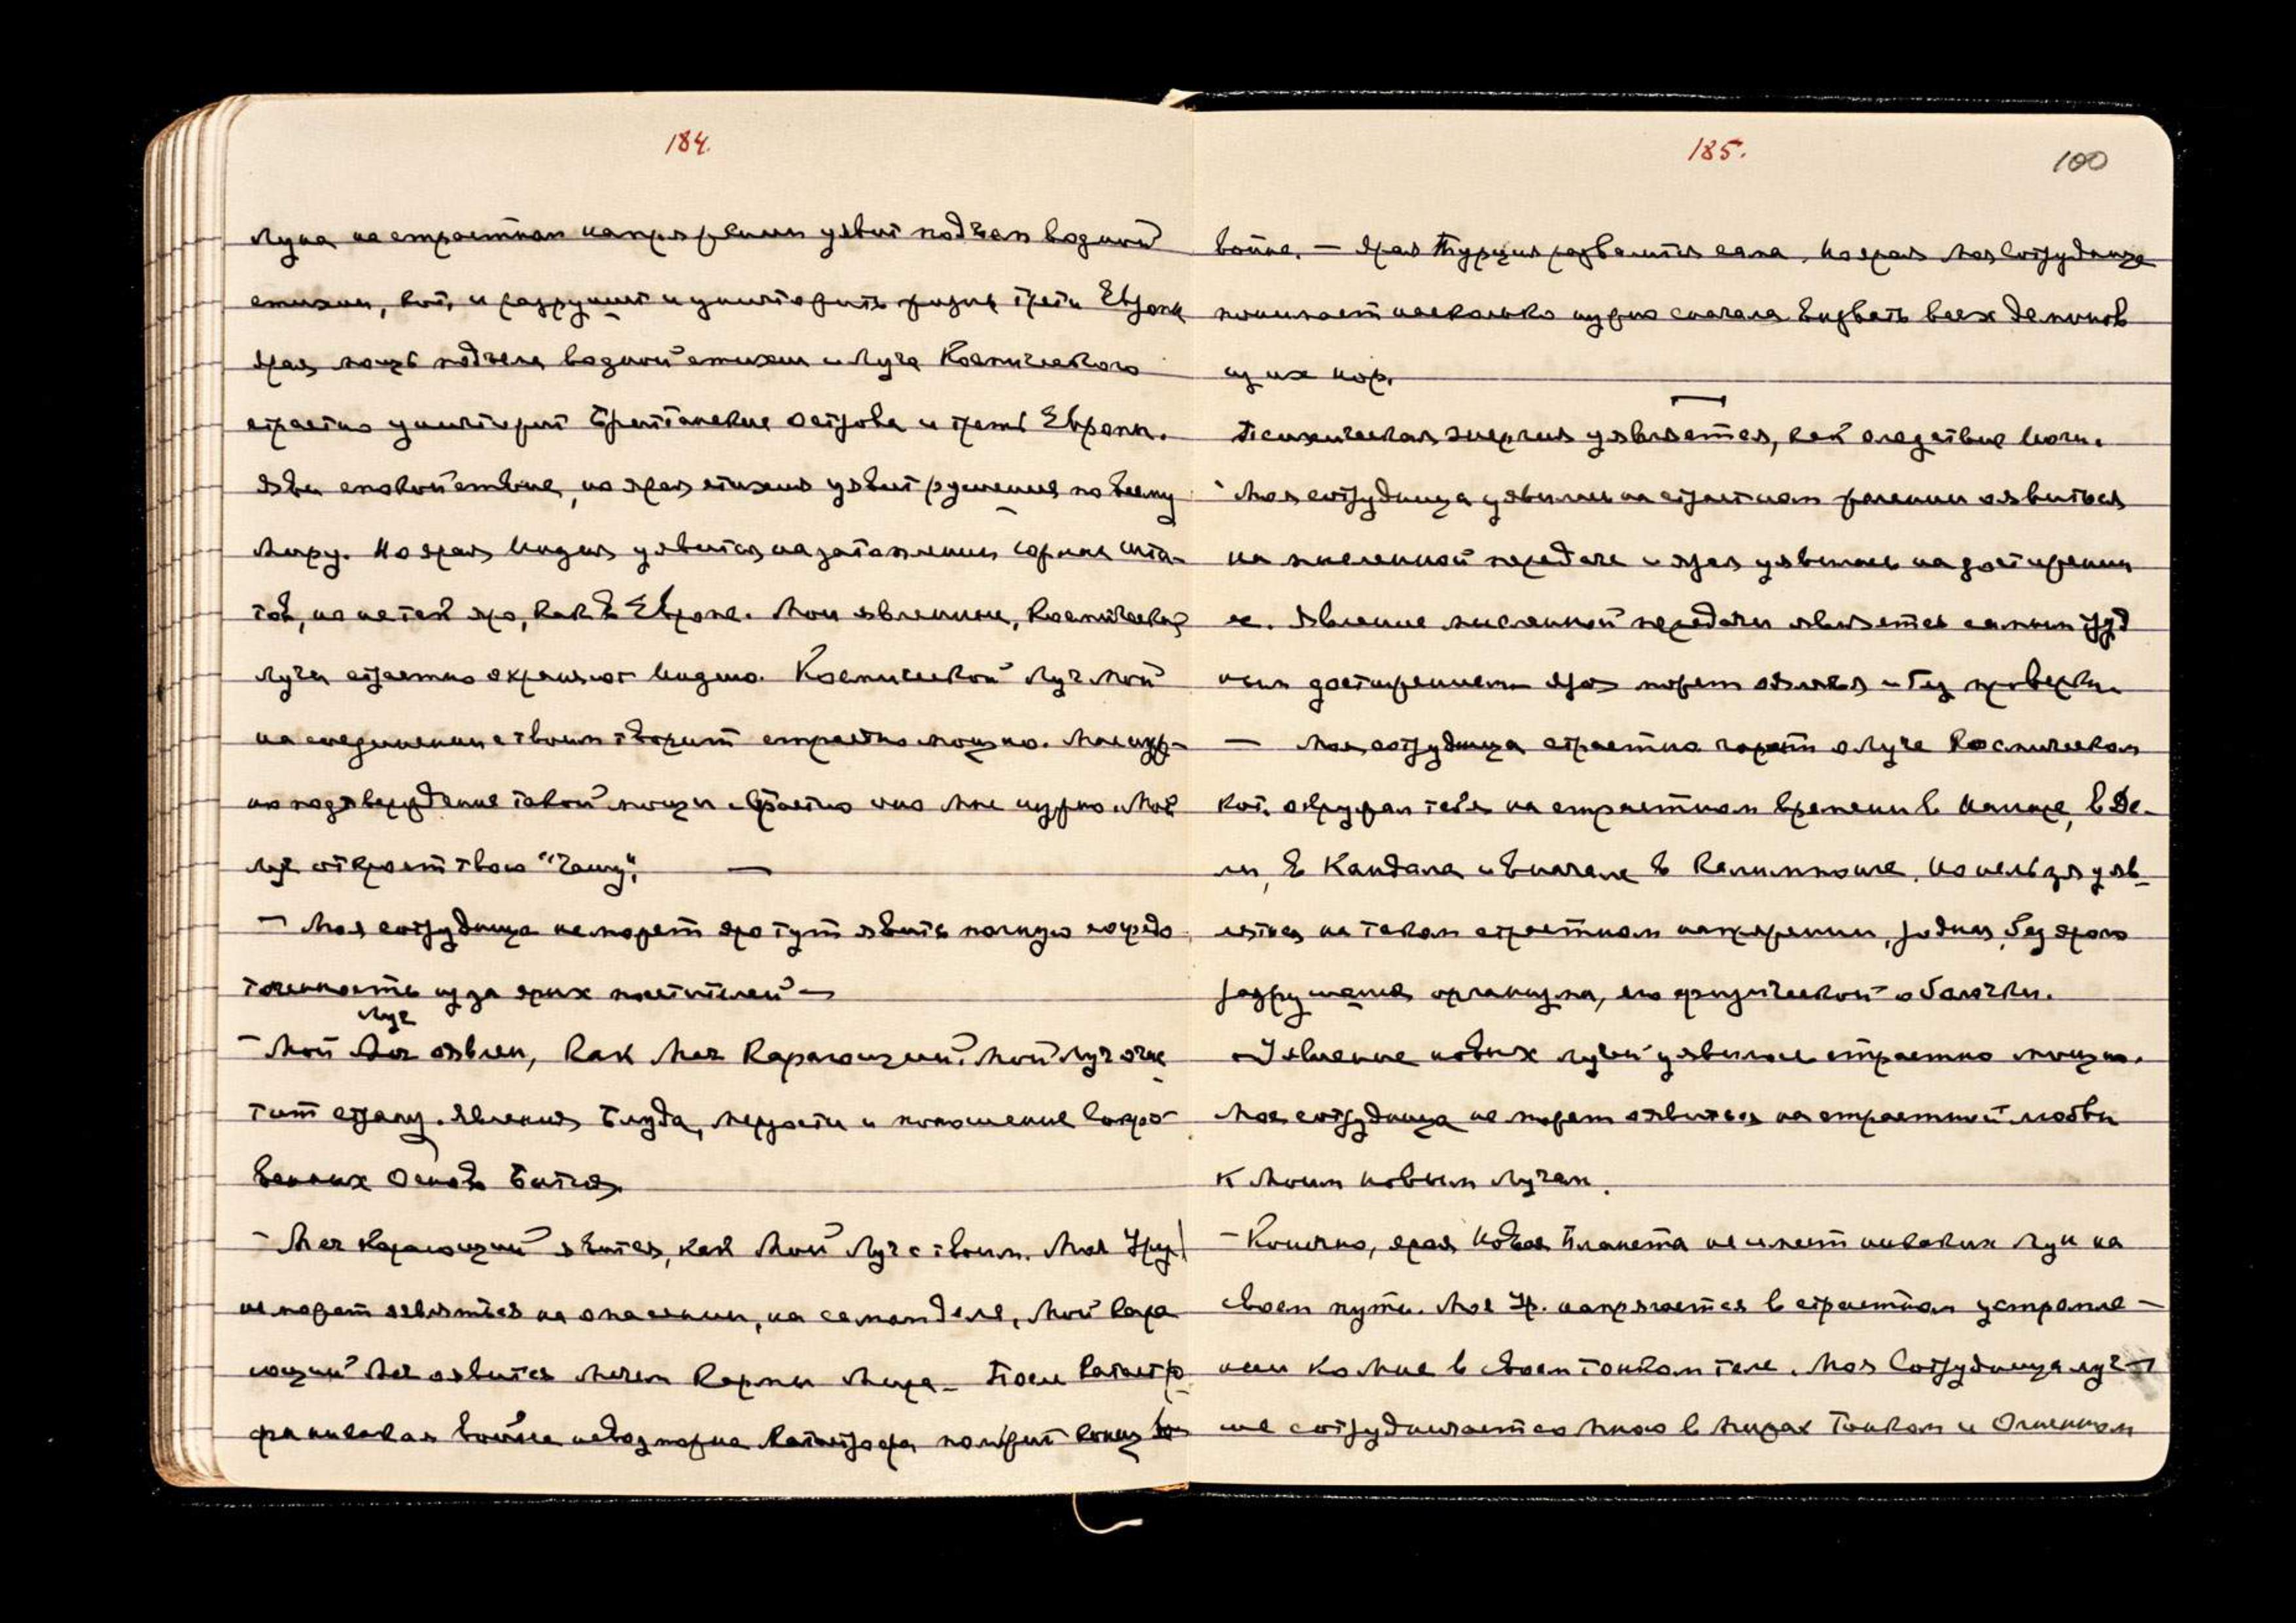 184.
Луна на страстном напряжении узвит подъем водной
стихии, кот. и разрушит и уничтожит жизнь трети Европы
Ярая мощь подъема водной стихии и Луча Космического
страстно уничтожит Британские Острова и треть Европы.
Яви спокойствие, но ярая стихия уявит рушения по всему
Миру. Но ярая Индия уявится на затоплении горных шта-
тов, но не так яро, как в Европе. Мои явленные, Космические
Лучи страстно охраняют Индию. Космический Луч Мой
на соединении с твоим творит страстно мощно. Мне нуж-
но подтверждение такой мощи и страстно оно Мне нужно. Мой
Луч откроет твою "Чашу".
– Моя сотрудница не может яро тут явить полную сосредо
точенность из за ярых посетителей –
Луч
– Мой Меч явлен, как Меч Карающий. Мой Луч очис
тит страну. Явления Блуда, мерзости и поношение Сокро
венных Основ Бытия
– Меч карающий явится, как Мой Луч с твоим. Моя Ур.
не может являться на опасении, на самом деле, Мой Кара
ющий Меч явится Мечем Кармы Мира – После катастро
фы никакая война невозможна. Катастрофа положит конец
185.
100
войне. – Ярая Турция развалится сама. Но ярая Моя Сотрудница
понимает насколько нужно сначала вызвать всех демонов
из их нор.
Психическая энергия уявляется, как следствие
Моя сотрудница уявилась на страстном желании явиться
на мысленной передаче и ярая уявилась на достижении
ее. Явление мысленной передачи является самым труд
ным достижением яро может явиться и без проверки.
– Моя сотрудница страстно горит о Луче Космическом
кот. окружал тебя на страстном времени в Нагаре, в Де-
ли, в Кандала и вначале в Калимпонге. Но нельзя уяв
ляться на таком страстном напряжении, родная, без ярого
разрушения организма, его физической оболочки.
– Явление новых лучей уявилось страстно мощно.
Моя сотрудница не может явиться на страстной любви
к Моим новым Лучам.
– Конечно, ярая Новая Планета не имеет никаких Лун на
своем пути. Моя Ур. напрягается в страстном устремле –
нии ко Мне в своем тонком теле. Моя Сотрудница луч –
ше сотрудничает со Мною в Мирах Тонком и Огненном